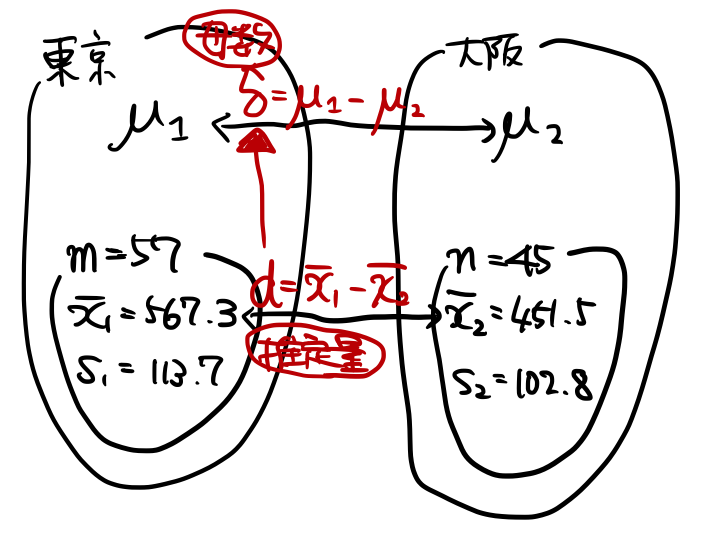 東京
母数
大阪
δ=μ₁−μ₂
μ₁
μ₂
m=57
x̄₁=567.3
S₁=113.7
d=x̄₁−x̄₂
推定量
n=45
x̄₂=451.5
S₂=102.8